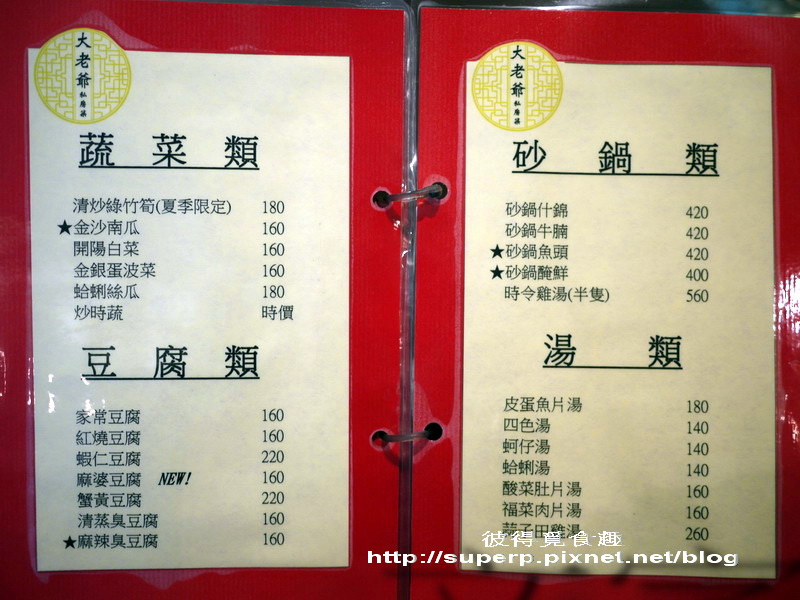 大老爺
私房菜
蔬菜類
清炒綠竹筍(夏季限定) 180
★金沙南瓜 160
開陽白菜 160
金銀蛋波菜 160
蛤蜊絲瓜 180
炒時蔬 時價
豆腐類
家常豆腐 160
紅燒豆腐 160
蝦仁豆腐 220
麻婆豆腐 NEW! 160
蟹黃豆腐 220
清蒸臭豆腐 160
★麻辣臭豆腐 160
大老爺
私房菜
砂鍋類
砂鍋什錦 420
砂鍋牛腩 420
★砂鍋魚頭 420
★砂鍋醃鮮 400
時令雞湯(半隻) 560
湯類
皮蛋魚片湯 180
四色湯 140
蚵仔湯 140
蛤蜊湯 140
酸菜肚片湯 160
福菜肉片湯 160
蒜子田雞湯 260
彼得覓食趣
http://superp.pixnet.net/blog